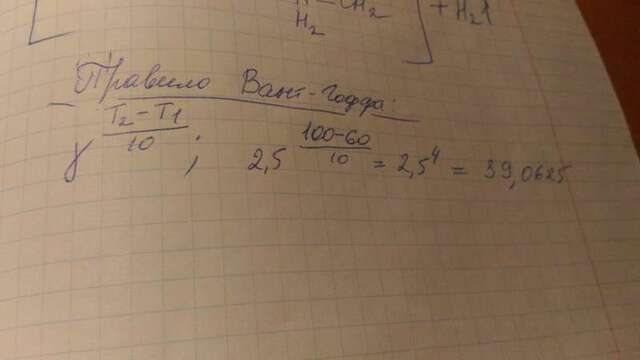 H – CH₂
H₂
] + H₂1
Правило Вант-Гоффа:
γ^((T₂ – T1)/10) ; 2,5^((100-60)/10) = 2,5⁴ = 39,0625